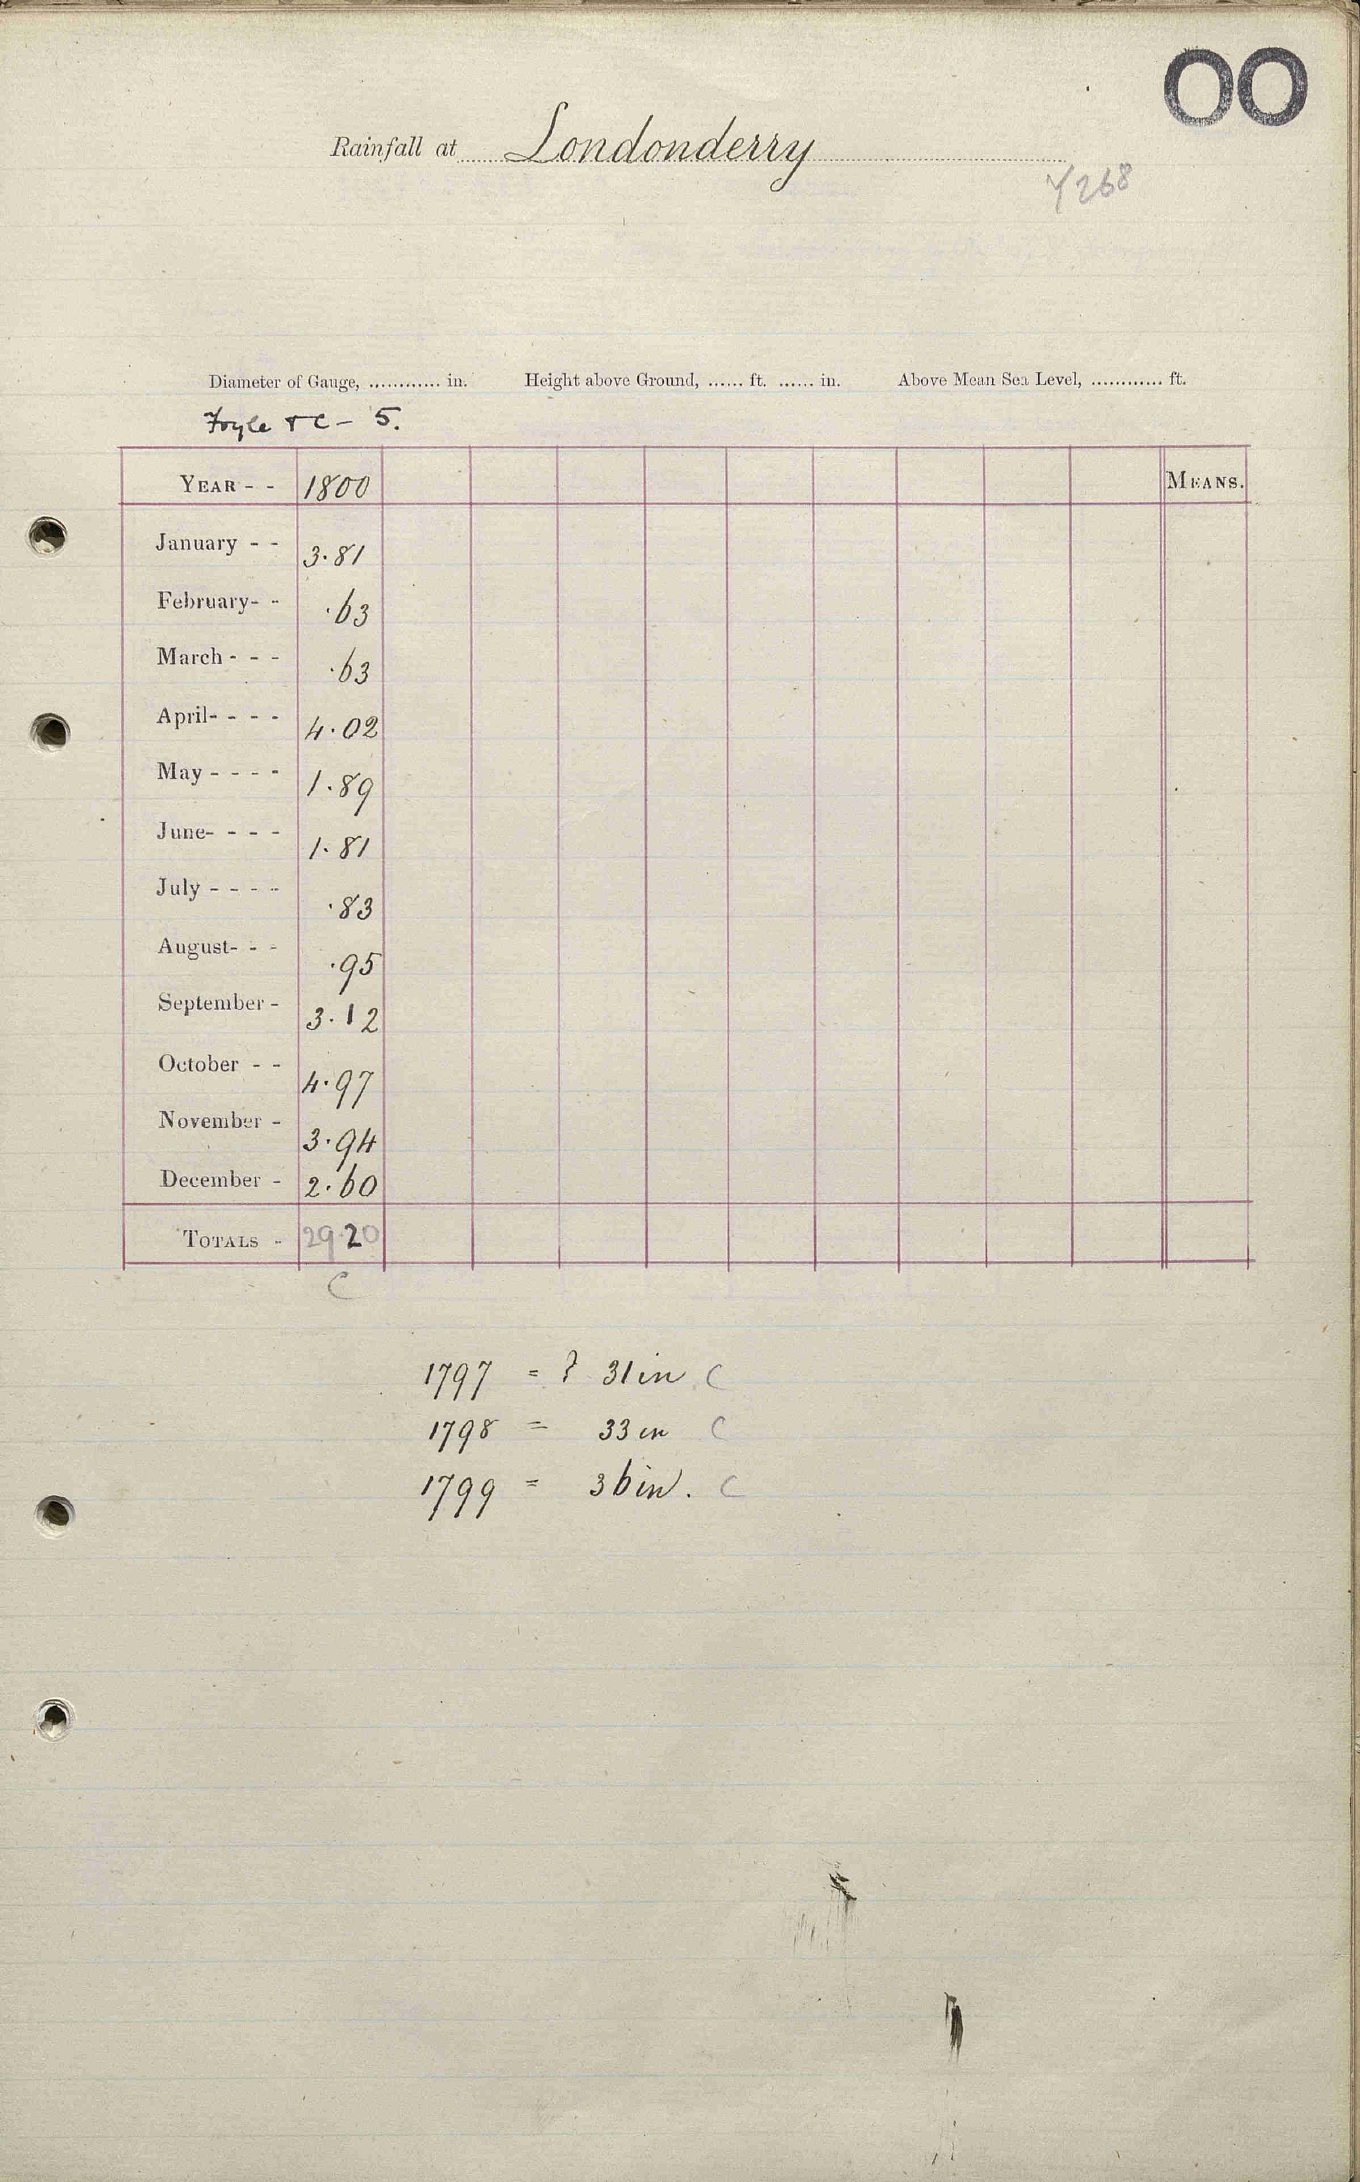 OO
Rainfall at Londonderry
Y268
Diameter of Gauge, ............ in. Height above Ground, ...... ft. ...... in. Above Mean Sea Level, ............ ft.
Foyle & C – 5.
YEAR - - 1800 MEANS.
January - - 3.81
February- - .63
March - - - .63
April- - - - 4.02
May - - - - 1.89
June- - - - 1.81
July - - - - .83
August- - - .95
September - 3.12
October - - 4.97
November - 3.94
December - 2.60
TOTALS - 29.20
C
1797 = ? 31 in C
1798 = 33 in C
1799 = 36 in. C